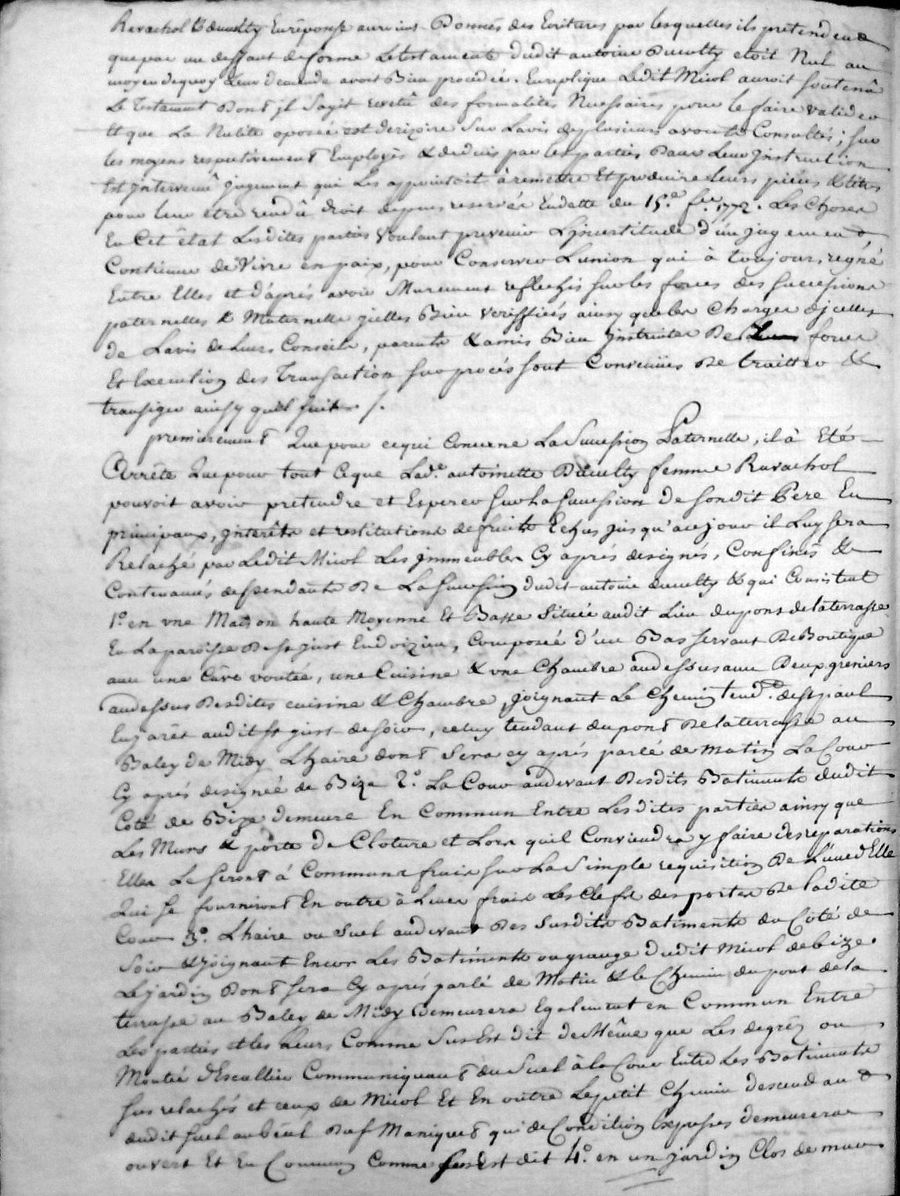 Ravachol & decultty En réponse auroint Donnés des Ecritures par lesquelles ils pretendent
que par un deffaut de forme Le testament dudit antoine Decultty etoit Nul au
moyen de quoy Leur demande avoit Bien procedée. En replique Ledit Micol auroit soutenû
Le Testament Dont jl Sagit revetû des formalités Necessaires pour le faire valider
Et que La Nulité oposée est derizoire Sur Lavis de plusieurs avocats Consultés; sur
les moyens respectivement Employés & deduis par les parties Dans Leur Instruction
Est Intervenû Jugement qui Les appointoit à remettre Et produire Leurs pieces & titres
pour leur etre rendû droit depens reservés En datte du 15.e fer. 1772. Les Choses
En Cet êtat Lesdites parties Voulant prevenir L'jncertitude d'un jugement &
Continuer de Vivre en paix, pour Conserver L'union qui à toujours regné
Entre Elles et d'áprés avoir Murement reflechis sur les forces des successions
paternelles & Maternelle jcelles Bien veriffiées ainsy que les Charges d'jcelles
de Lavis de Leurs Conseils, parents & amis Bien Instruites De La force
Et Execution des Transaction sur procés sont Convenües De traitter &
transiger ainsy quil suit ./.
premierement Que pour ce qui Concerne La Succession Paternelle, il à Eté
Arrêté Que pour tout Ce que Lad.e antoinette Decultty femme Ravachol
pouvoit avoir pretendre et Esperer sur La succession de sondit Pere En
principaux, Interêts et restitutions de fruits Echus jusqu'a ce jour il Luy sera
Relaché par Ledit Micol Les Immeubles Cy aprés designés, Confinés &
Contenancés dependants De La succession dudit antoine decultty & qui Consistent
1.o en vne Maison haute Moyenne Et Basse Située audit Lieu du pont de la terrasse
En La paroisse De st just En doizieu, Composée d'un Bas servant De Boutique
avec une Câve voutée, une Cuisine & vne Chambre au dessus avec Deux greniers
au dessus Desdites cuisine & Chambre, joignant Le Chemin tend.t de st paul
En jarêt audit st just de soir, celuy tendant du pont De la terrasse au
Baley de Midy L'haire dont Sera cy aprés parlé de matin La Cour
Cy aprés designée de Bize 2.o La Cour au devant Desdits Batiments dudit
Coté de Bize demeure En Commun Entre Lesdites parties ainsy que
Les Murs & porte de Cloture et Lors quil Conviendra y faire des reparations
Elles Le feront à Communs frais sur La Simple requisition De L'une d'Elle
Qui se fourniront En outre à Leurs frais Les Clefs des portes De ladite
Cour 3.o L'haire ou Suel au devant Des Susdits Batiments du Côté de
Soir & joignant Encor Les Batiments ou grange dudit Micol de bize
Le jardin Dont sera Cy aprés parlé de Matin & le Chemin du pont de la
terrasse au Baley de Midy demeurera Egalement en Commun Entre
Les parties et les Leurs Comme Sus Est dit de Même que Les degrés ou
Montée d'Escallier Communiquant du Suel à la Cour Entre Les Batiments
sus relachés et ceux de Micol Et En outre Le petit Chemin descendant
dudit suel au Maniquet qui de Condition Expresse demeurera
ouvert Et En Commun Comme sus Est dit 4.o en un jardin Clos de murs